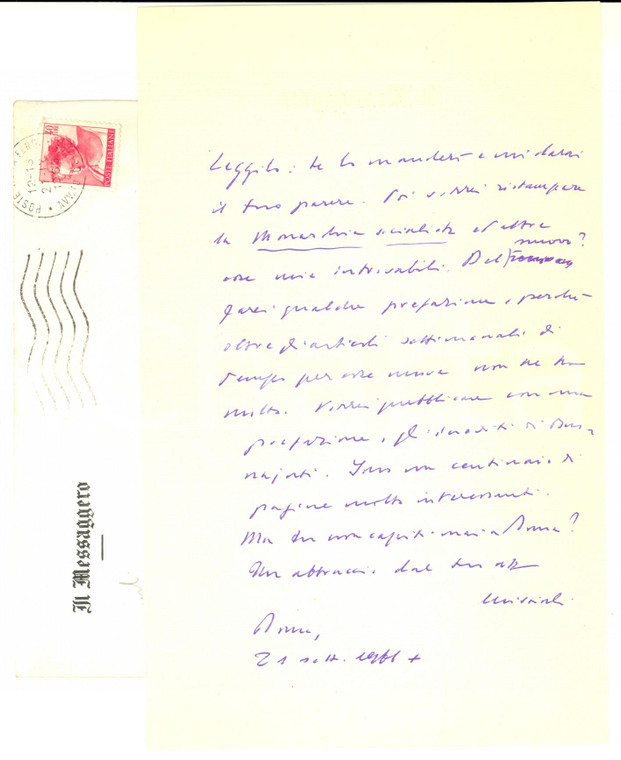 Leggilo: te lo manderò e mi darai
il tuo parere. Poi vorrei ristampare
la Monarchia socialista ed altre
cose mie introvabili. Del nuovo?
farei qualche prefazione, perché
oltre gli articoli settimanali di
tempo per cose nuove non ne ho
molto. Vorrei pubblicare con una
prefazione, gli inediti di Buo-
naiuti. Sono un centinaio di
pagine molto interessanti.
Ma tu non capiti mai a Roma?
Un abbraccio dal tuo aff
Missiroli
Roma,
21 sett. 1966
Il Messaggero
POSTE ITALIANE